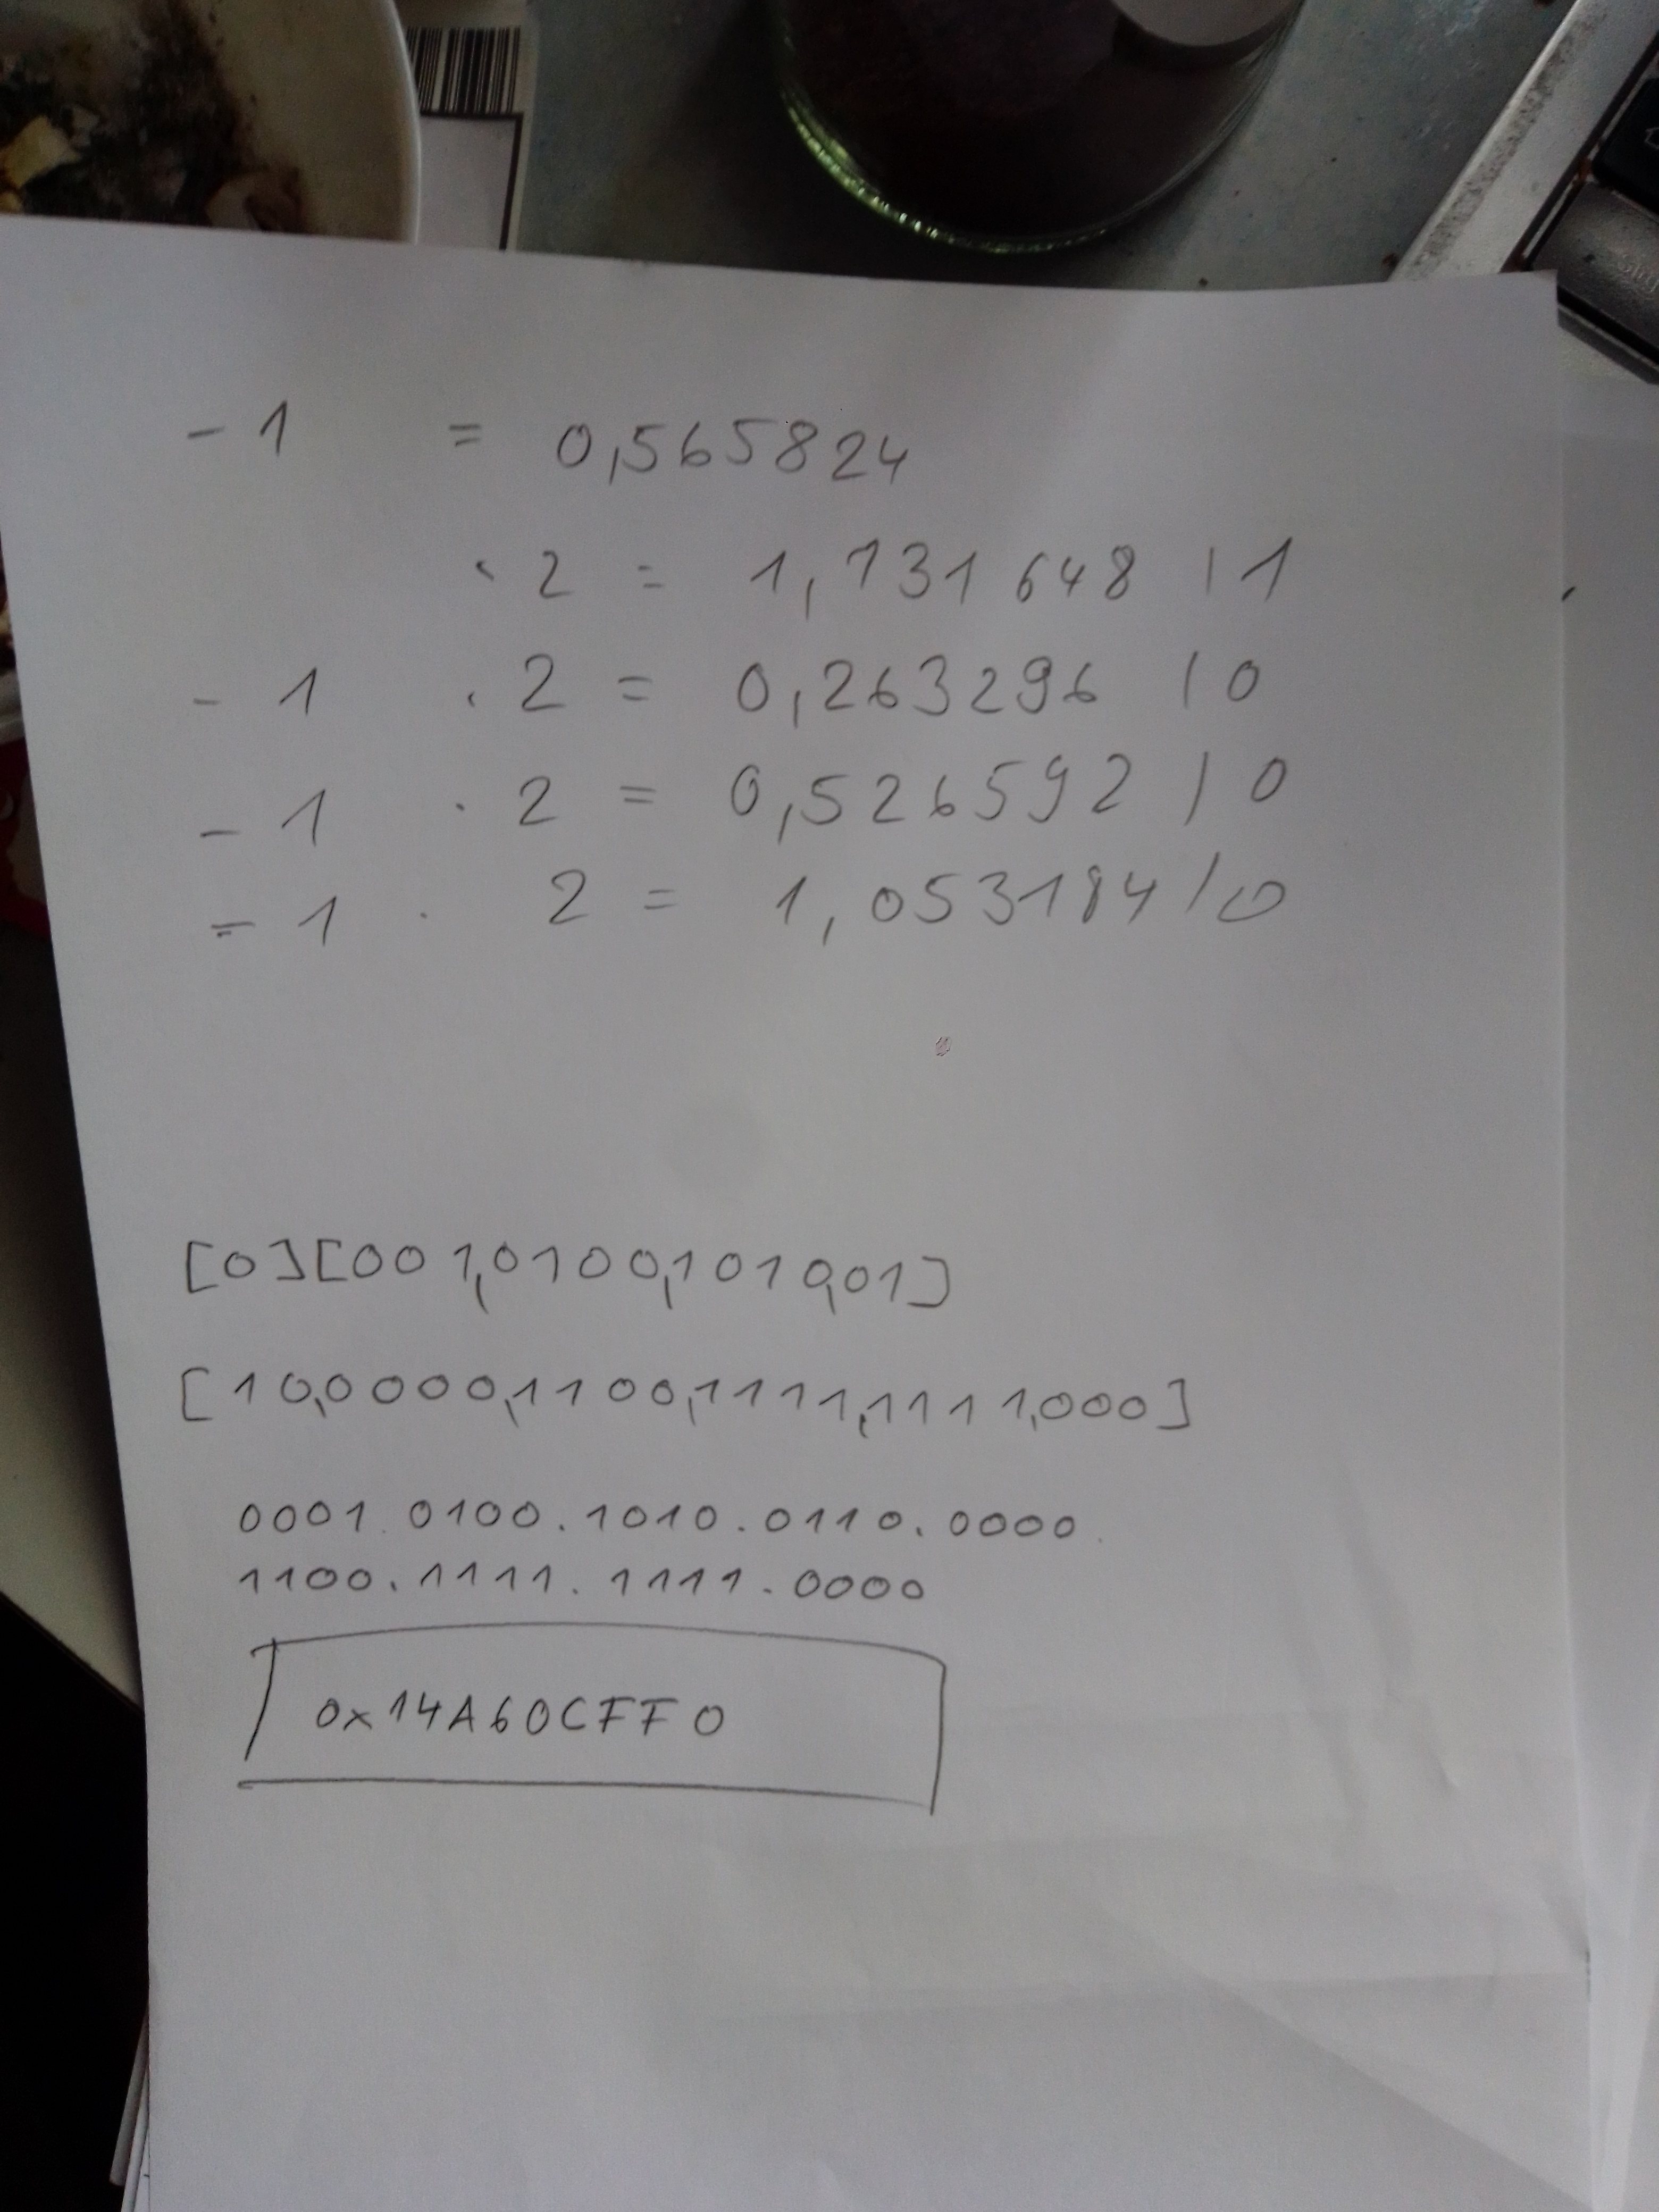 - 1 = 0,565824
· 2 = 1,131648 | 1
- 1 · 2 = 0,263296 | 0
- 1 · 2 = 0,526592 | 0
- 1 · 2 = 1,053184 | 0
[0][001,0100,1010,01]
[10,0000,1100,1111,1111,000]
0001.0100.1010.0110.0000.
1100.1111.1111.0000
0x14A60CFF0